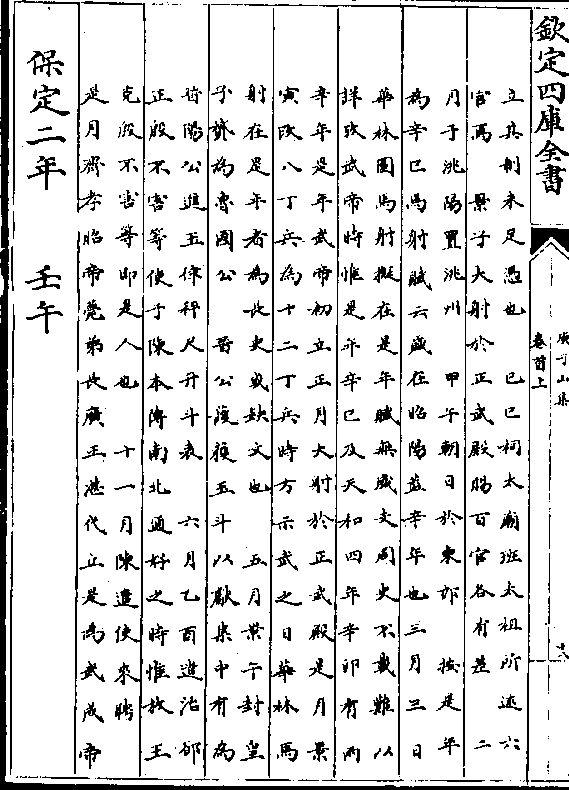 欽定四庫全書
庾子山集
卷首上
立其制未足憑也　己巳祠太廟班太祖所述六
官焉　景子大射於正武殿賜百官各有差　二
月于洮陽置洮州　甲午朝日於東郊　按是年
為辛巳馬射賦云歲在昭陽葢辛年也三月三日
華林園馬射擬在是年賦無歲支周史不載難以
詳攷武帝時惟是年辛巳及天和四年辛卯有兩
辛年是年武帝初立正月大射於正武殿是月景
寅改八丁兵為十二丁兵時方示武之日華林馬
射在是年者為長史或缺文也　五月景午封皇
子贇為魯國公　晉公護獲玉斗以獻集中有為
晉陽公進玉律秤尺升斗表　六月乙酉遣治御
正殷不害等使于陳本傳南北通好之時惟放王
克殷不害等即是人也　十一月陳遣使來聘
是月齊孝昭帝薨弟長廣王湛代立是為武成帝
保定二年　壬午